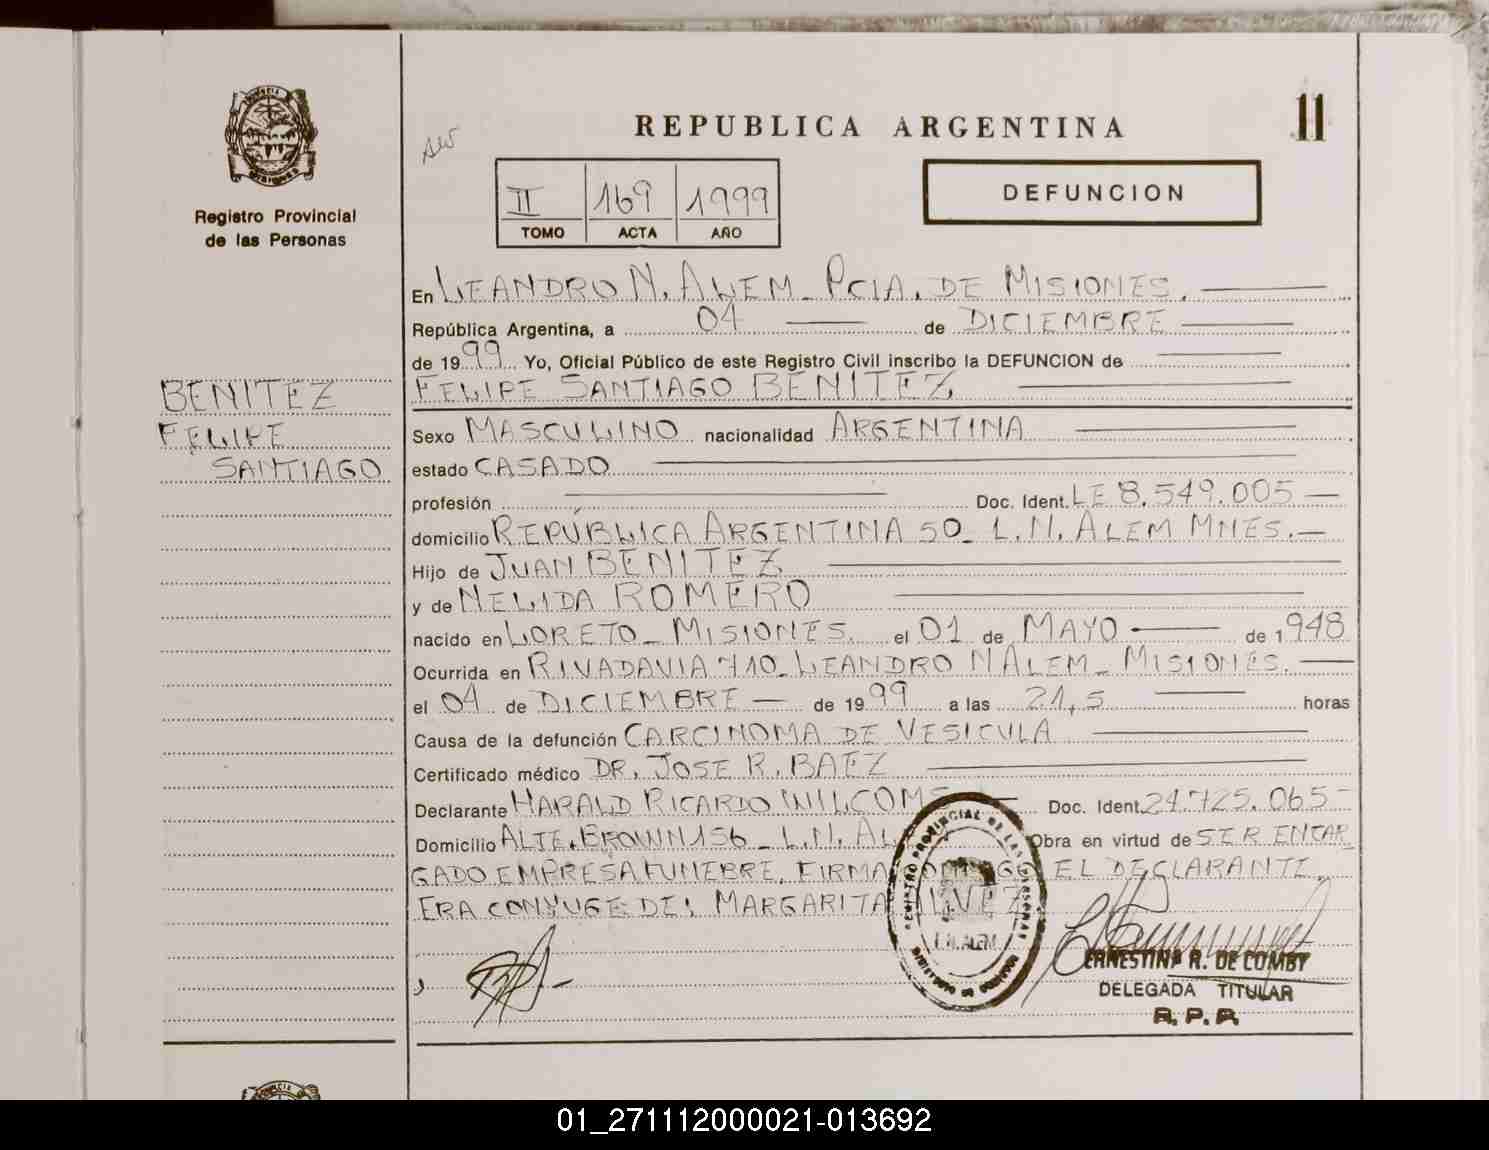 REPUBLICA ARGENTINA
11
Registro Provincial
de las Personas
II 169 1999
TOMO ACTA AÑO
DEFUNCION
En LEANDRO N. ALEM - PCIA. DE MISIONES.
República Argentina, a 04 de DICIEMBRE
de 1999 Yo, Oficial Público de este Registro Civil inscribo la DEFUNCION de
FELIPE SANTIAGO BENITEZ
BENITEZ
FELIPE
SANTIAGO
Sexo MASCULINO nacionalidad ARGENTINA
estado CASADO
profesión Doc. Ident. LE 8.549.005
domicilio REPÚBLICA ARGENTINA 50 - L.N. ALEM MNES.
Hijo de JUAN BENITEZ
y de NELIDA ROMERO
nacido en LORETO - MISIONES. el 01 de MAYO de 1948
Ocurrida en RIVADAVIA 710 - LEANDRO N ALEM - MISIONES.
el 04 de DICIEMBRE de 1999 a las 21,5 horas
Causa de la defunción CARCINOMA DE VESICULA
Certificado médico DR. JOSE R. BAEZ
Declarante HARALD RICARDO WILCOMS Doc. Ident. 24.725.065
Domicilio ALTE. BROWN 156 - L.N. AL Obra en virtud de SER ENCAR
GADO EMPRESA FUNEBRE. FIRMA EL DECLARANTE.
ERA CONYUGE DE: MARGARITA ALVEZ
REGISTRO PROVINCIAL DE LAS PERSONAS
L.N. ALEM
ERNESTINA R. DE COMBY
DELEGADA TITULAR
R. P. P.
01_271112000021-013692